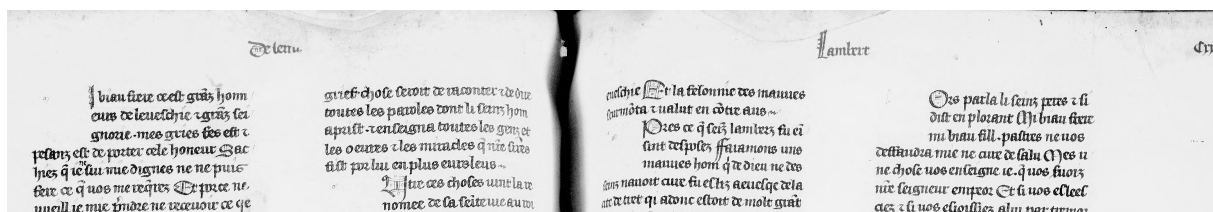 De seint
Lambert
biau frere ce est granz honn
eurs de leveschie ⁊ granz sei
gnorie. mes gries fes est ⁊
pesanz est de porter cele honeur Sac
hiez q̃ ie sui mie dignes ne ne puis
fere ce q̃ vos me reqrez Et porce ne
vueill ie mie p̃ndre ne recevoir ce qe
grief chose seroit de raconter ⁊ de dire
toutes les paroles dont li seinz hom
aprist ⁊ enseigna toutes les genz et
les oevres ⁊ les miracles q̃ nr̃e sires
fist por lui en plus eurs leus
Entre ces choses vint la re
nomee de sa seinte vie au roi
eveschie Et la felonnie des mauves
sourmõta ⁊ valut en cõtre aus
Ores ce q̃ seiz lamberz fu ei
sint desposez
mauves hom q̃ de dieu ne des
seinz navoit cure fu esliz a evesqe de la
cite de tret qi adonc estoit de molt grãt
Ors parla li seinz peres ⁊ si
dist en plorant Mi biau frere
mi biau fill. pastres ne vos
deffaudra mie ne cure de salu Mes ie
ne chose vos enseigne ie. q̃ vos fuoiz
nr̃e seigneur empeor Et si vos eslees
ciez ⁊ si vos esioissiez